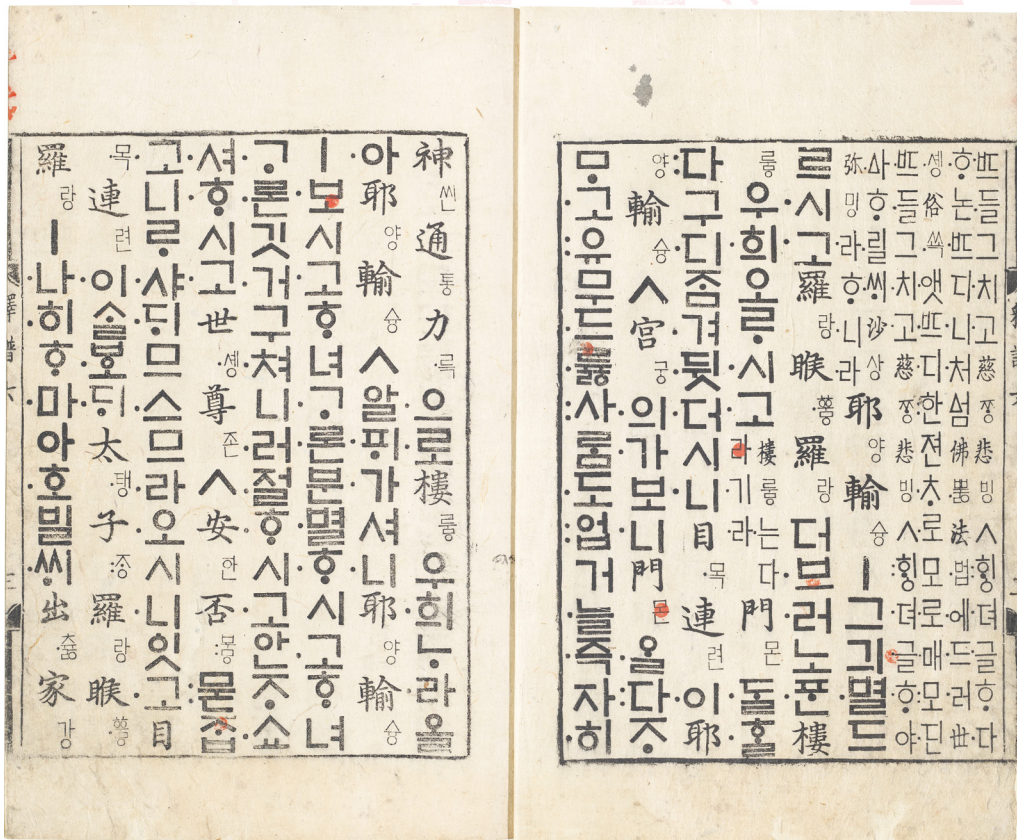 ᄠᅳ들그치고慈ᄍᆞᆼ悲빙ㅅᄒᆡᇰ뎌글ᄒᆞ다
ᄒᆞ논ᄠᅳ디니처ᅀᅥᆷ佛뿌ᇙ法법에드러世
솅俗쑉앳ᄠᅳ디한젼ᄎᆞ로모로매모딘
ᄠᅳ들그치고慈ᄍᆞᆼ悲빙ㅅᄒᆡᇰ뎌글ᄒᆞ야
사ᄒᆞ릴ᄊᆡ沙상
弥밍라ᄒᆞ니라
耶양輸슝ㅣ그긔별드
르시고羅랑睺ᅘᅮᇢ羅랑더브러노ᄑᆞᆫ樓
륳우희오ᄅᆞ시고樓륳는다라기라門몬ᄃᆞᆯᄒᆞᆯ
다구디ᄌᆞᆷ겨뒷더시니目목連련이耶
양輸슝ㅅ宮궁의가보니門몬ᄋᆞᆯ다ᄌᆞ
ᄆᆞ고유무드륧사ᄅᆞᆷ도업거늘즉자히
神씬通통力륵으로樓륳우희ᄂᆞ라올
아耶양輸슝ㅅ알ᄑᆡ가셔니耶양輸슝
ㅣ보시고ᄒᆞ녀ᄀᆞ론분별ᄒᆞ시고ᄒᆞ녀
ᄀᆞ론깃거구쳐니러절ᄒᆞ시고안ᄌᆞ쇼
셔ᄒᆞ시고世솅尊존ㅅ安ᅙᅡᆫ否부ᇢ묻ᄌᆞᆸ
고니ᄅᆞ샤ᄃᆡ므스므라오시니ᅌᅵᆺ고目
목連련이ᄉᆞᆯᄫᅩᄃᆡ太탱子ᄌᆞᆼ羅랑睺ᅘᅮᇢ
羅랑ㅣ나히ᄒᆞ마아호빌ᄊᆡ出츓家강